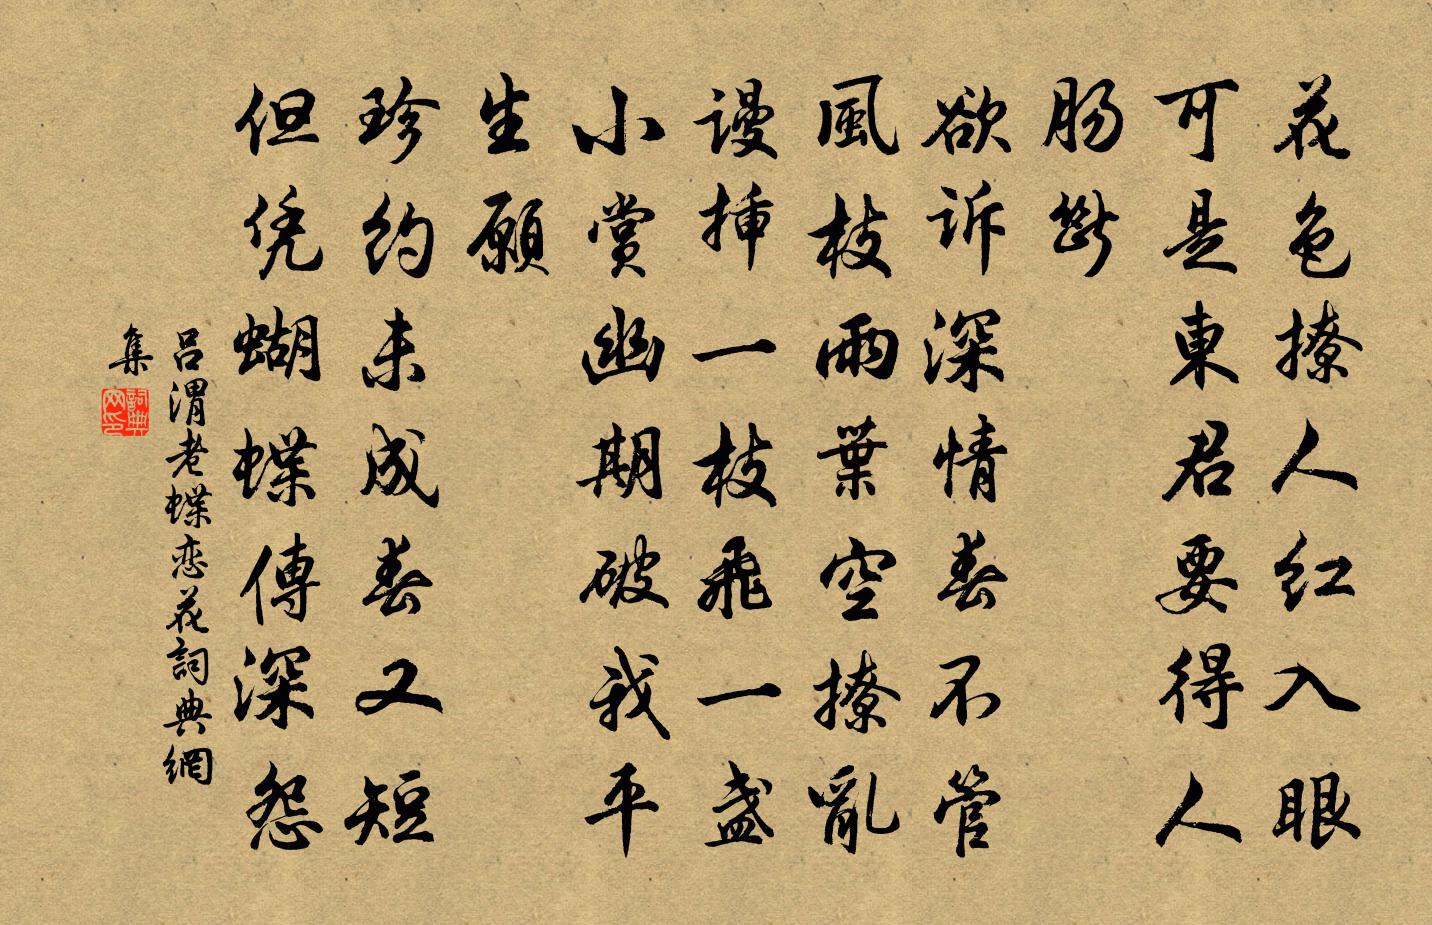 花色撩人红入眼
可是東君要得人
肠断
欲诉深情春不管
風枝雨葉空撩亂
谩插一枝飛一盏
小赏幽期破我平
生願
珍约未成春又短
但凭蝴蝶傳深怨
吕渭老蝶恋花詞典網
集
詞典
网印